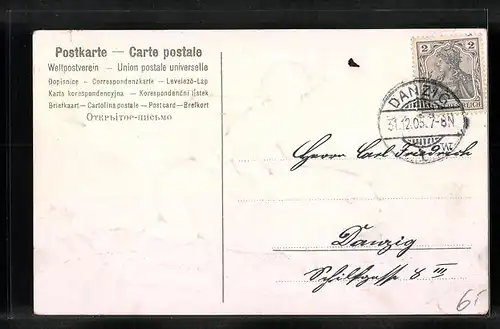 Postkarte — Carte postale
Weltpostverein - Union postale universelle
Dopisnice - Correspondenzkarte - Levelező-Lap
Karta korespondencyjna - Korespondenční listek
Briefkaart - Cartolina postale - Postcard - Brefkort
Открытое-письмо
2 2
REICH
DANZIG
31.12.05.7-8N
Herrn Carl Friedrich
Danzig
Schilfgasse 8 III